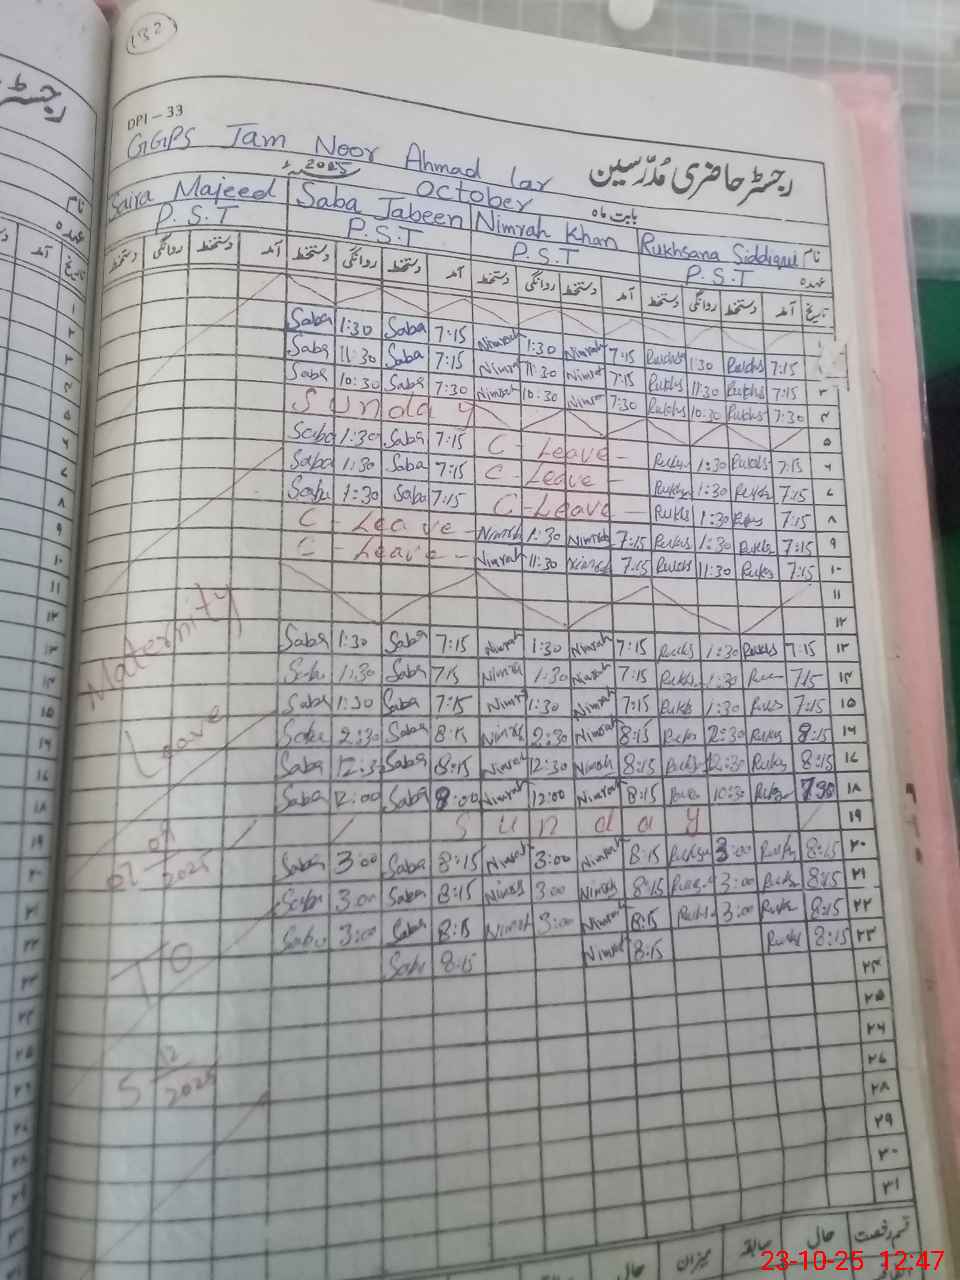 132
DPI - 33
رجسٹر حاضری مُدرّسین
GGPS Jam Noor Ahmad lar
بابت ماہ October 2025ء
نام Rukhsana Siddiqui Nimrah Khan Saba Jabeen Saira Majeed
عہدہ P.S.T P.S.T P.S.T P.S.T
تاریخ آمد دستخط روانگی دستخط آمد دستخط روانگی دستخط آمد دستخط روانگی دستخط آمد دستخط روانگی دستخط
Saba 1:30 Saba 7:15 Nimrah 1:30 Nimrah 7:15 Rukhs 1:30 Rukhs 7:15
Saba 11:30 Saba 7:15 Nimrah 11:30 Nimrah 7:15 Rukhs 11:30 Rukhs 7:15 ۳
Saba 10:30 Saba 7:30 Nimrah 10:30 Nimrah 7:30 Rukhs 10:30 Rukhs 7:30 ۴
Sunday ۵
Saba 1:30 Saba 7:15 C - Leave - 1:30 Rukhs 7:15 ۶
Saba 1:30 Saba 7:15 C - Leave - 1:30 Rukhs 7:15 ۷
Saba 1:30 Saba 7:15 C - Leave - Rukhs 1:30 Rukhs 7:15 ۸
C - Leave - Nimrah 1:30 Nimrah 7:15 Rukhs 1:30 Rukhs 7:15 ۹
C - Leave - Nimrah 11:30 Nimrah 7:15 Rukhs 11:30 Rukhs 7:15 ۱۰
۱۱
۱۲
Saba 1:30 Saba 7:15 Nimrah 1:30 Nimrah 7:15 Rukhs 1:30 Rukhs 7:15 ۱۳
Saba 1:30 Saba 7:15 Nimrah 1:30 Nimrah 7:15 Rukhs 1:30 7:15 ۱۴
Saba 1:30 Saba 7:15 Nimrah 1:30 Nimrah 7:15 Rukhs 1:30 Rukhs 7:15 ۱۵
Saba 2:30 Saba 8:15 Nimrah 2:30 Nimrah 8:15 Rukhs 2:30 Rukhs 8:15 ۱۶
Saba 12:30 Saba 8:15 Nimrah 12:30 Nimrah 8:15 Rukhs 12:30 Rukhs 8:15 ۱۷
Saba 12:00 Saba 8:00 Nimrah 12:00 Nimrah 8:15 Rukhs 10:30 Rukhs 7:30 ۱۸
Sunday ۱۹
Saba 3:00 Saba 8:15 Nimrah 3:00 Nimrah 8:15 Rukhs 3:00 Rukhs 8:15 ۲۰
Saba 3:00 Saba 8:15 Nimrah 3:00 Nimrah 8:15 Rukhs 3:00 Rukhs 8:15 ۲۱
Saba 3:00 Saba 8:15 Nimrah 3:00 Nimrah 8:15 Rukhs 3:00 Rukhs 8:15 ۲۲
Saba 8:15 Nimrah 8:15 Rukhs 8:15 ۲۳
۲۴
۲۵
۲۶
۲۷
۲۸
۲۹
۳۰
۳۱
Maternity
Leave
07 09 2025
TO
5 12 2025
قسم رخصت حال سابقہ میزان حال
23-10-25 12:47